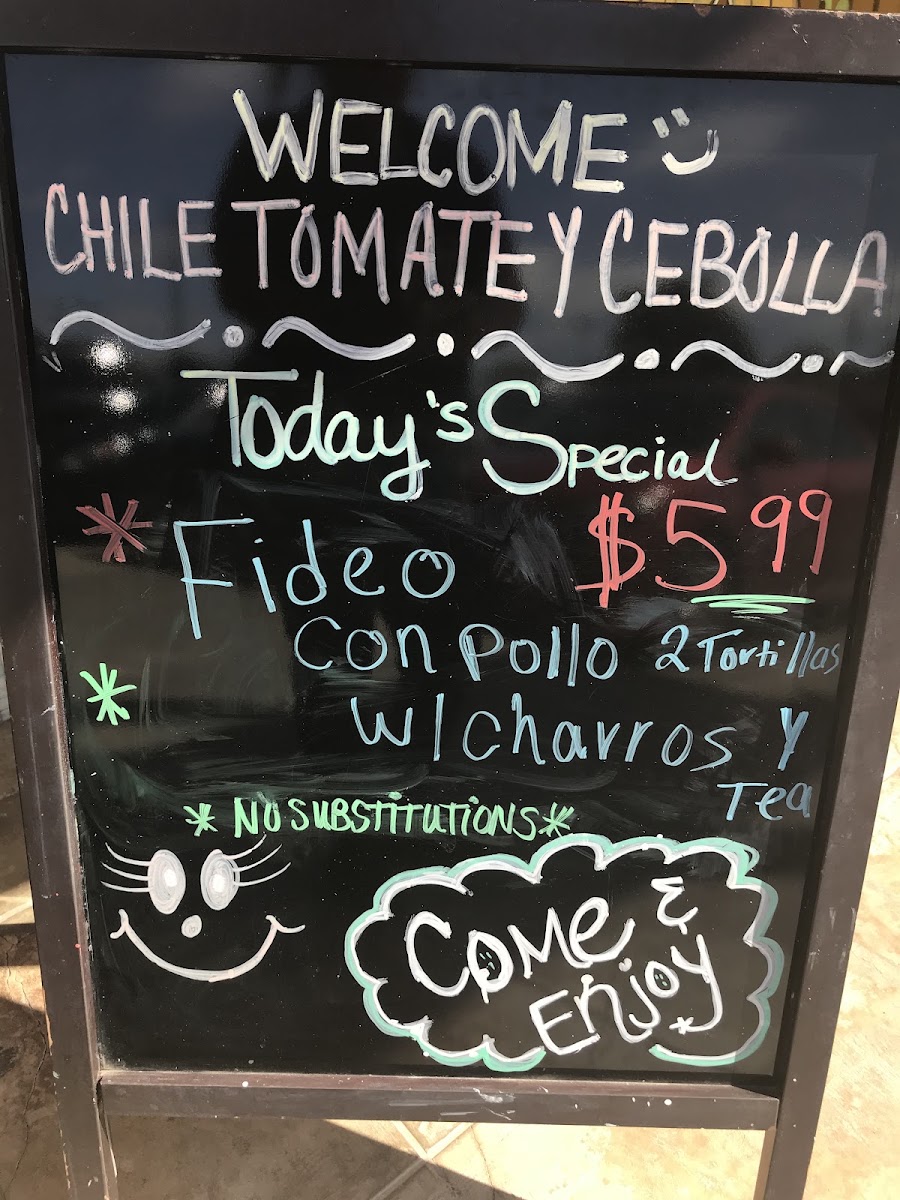 WELCOME
CHILE TOMATE Y CEBOLLA
Today's Special
* Fideo $5.99
con pollo 2 Tortillas
* w/charros y
Tea
* NO SUBSTITUTIONS *
COME &
ENJOY